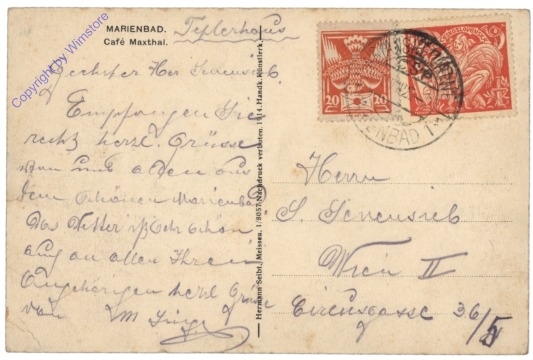 MARIENBAD. Teplerhaus
Café Maxthal.
Copyright by Winstore
Geehrter Herr
Empfangen Sie
recht herzl. Grüsse
von uns allen aus
dem schönen Marienbad
Das Wetter ist sehr schön
auch an allen Ihren
Angehörigen herzl Grüsse
von M
Hermann Seibt, Meissen. 1/8057 Nachdruck verboten. 1914. Handk. Künstlerk.
20 20
ENBAD 1
Herrn
S.
Wien II
Circusgasse 36/5